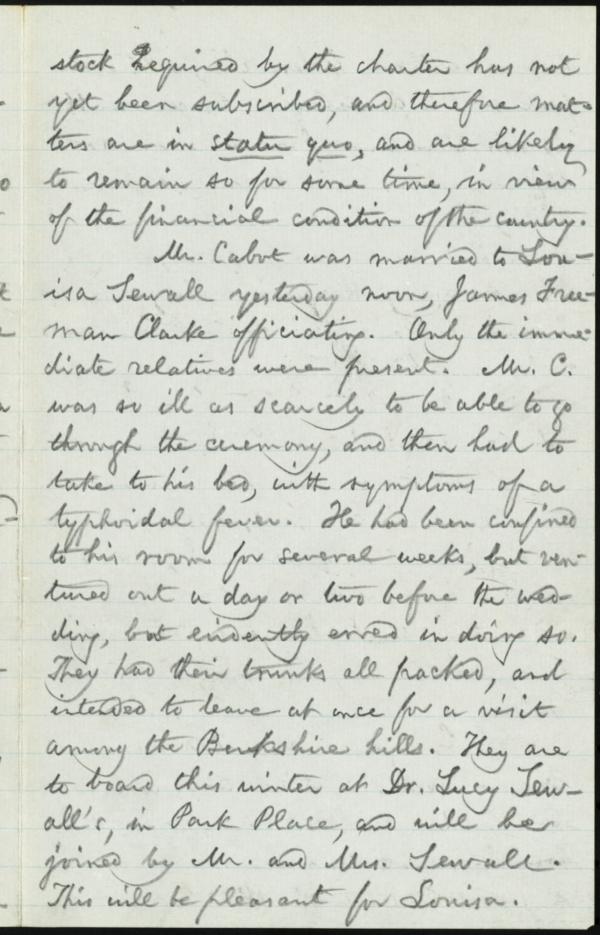 stock required by the charter has not
yet been subscribed, and therefore mat-
ters are in statu quo, and are likely
to remain so for some time, in view
of the financial condition of the country.
Mr. Cabot was married to Lou-
isa Sewall yesterday noon, James Free-
man Clarke officiating. Only the imme-
diate relatives were present. Mr. C.
was so ill as scarcely to be able to go
through the ceremony, and then had to
take to his bed, with symptoms of a
typhoidal fever. He had been confined
to his room for several weeks, but ven-
tured out a day or two before the wed-
ding, but evidently erred in doing so.
They had their trunks all packed, and
intended to leave at once for a visit
among the Berkshire hills. They are
to board this winter at Dr. Lucy Sew-
all's, in Park Place, and will be
joined by Mr. and Mrs. Sewall.
This will be pleasant for Louisa.